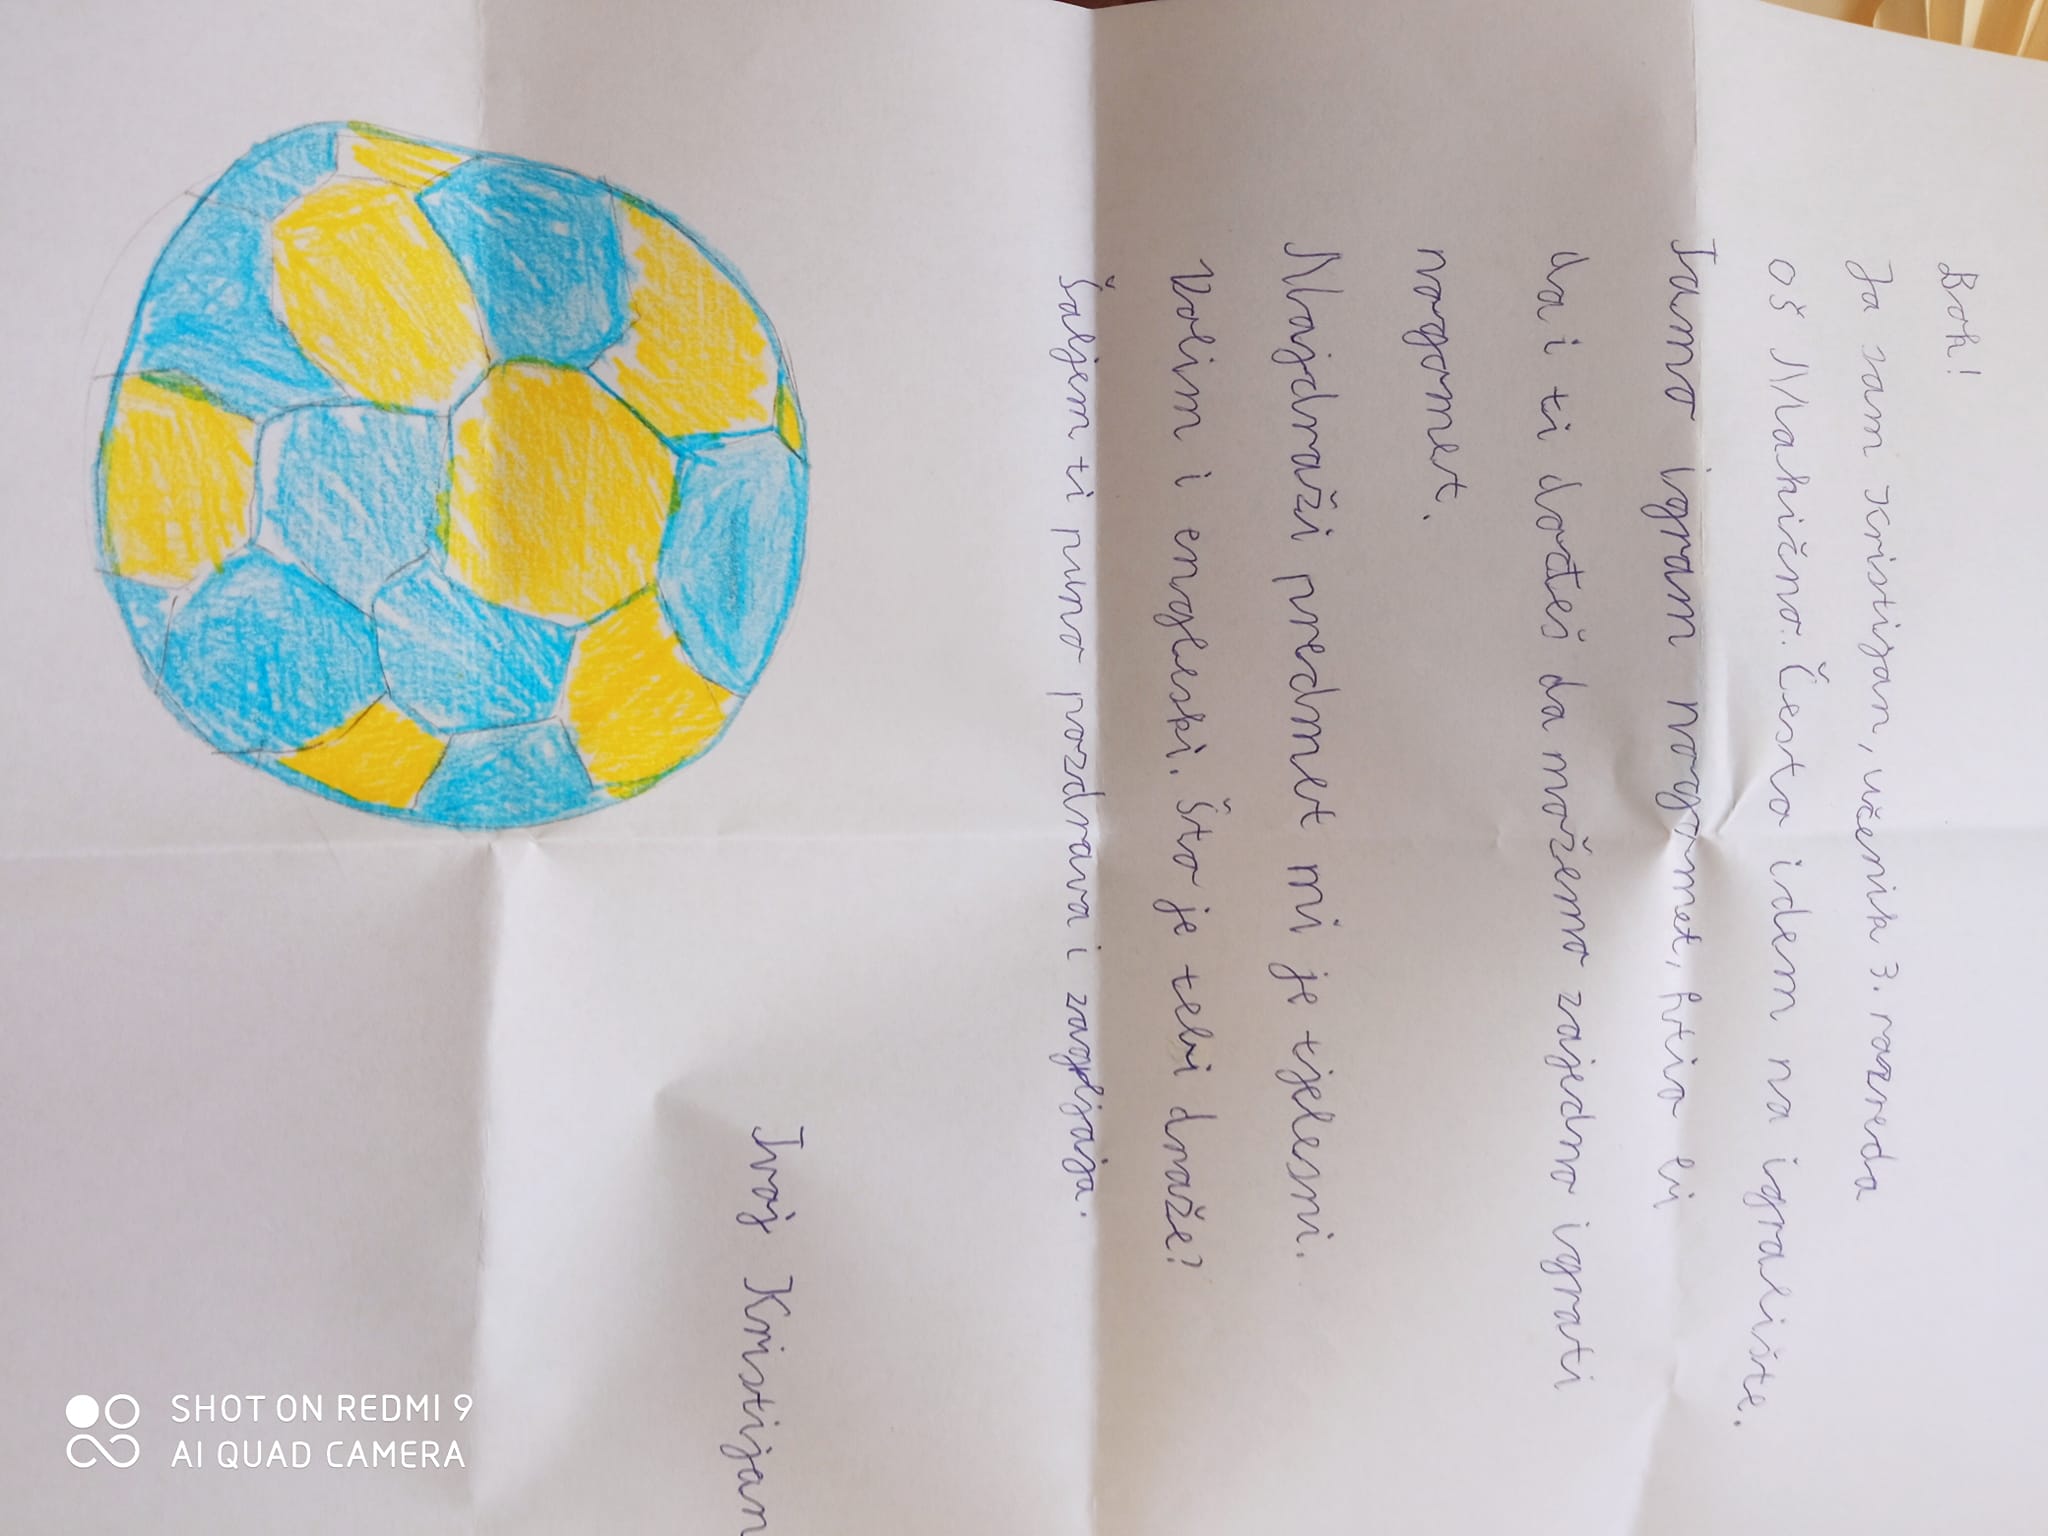 Bok!
Ja sam Kristijan, učenik 3. razreda
OŠ Mahično. Često idem na igralište.
Tamo igram nogomet, htio bi
da i ti dođeš da možemo zajedno igrati
nogomet.
Najdraži predmet mi je tjelesni.
Volim i engleski. Što je tebi draže?
Šaljem ti puno pozdrava i zagrljaja.
Tvoj Kristijan
SHOT ON REDMI 9
AI QUAD CAMERA